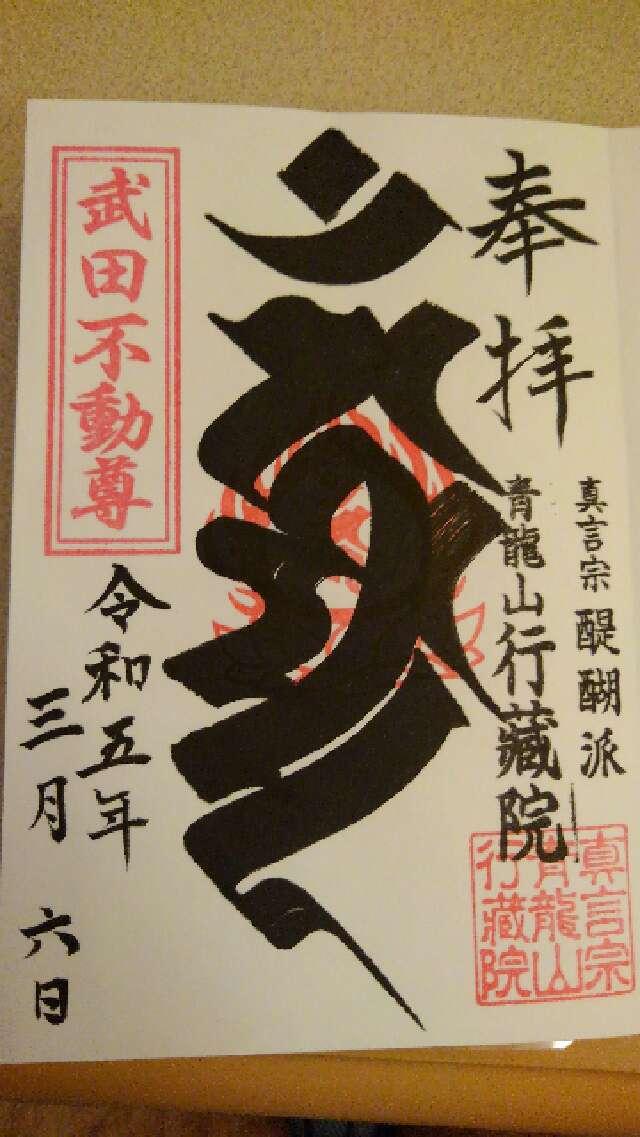 奉拝
真言宗醍醐派
青龍山行藏院
真言宗
青龍山
行藏院
武田不動尊
令和五年
三月六日